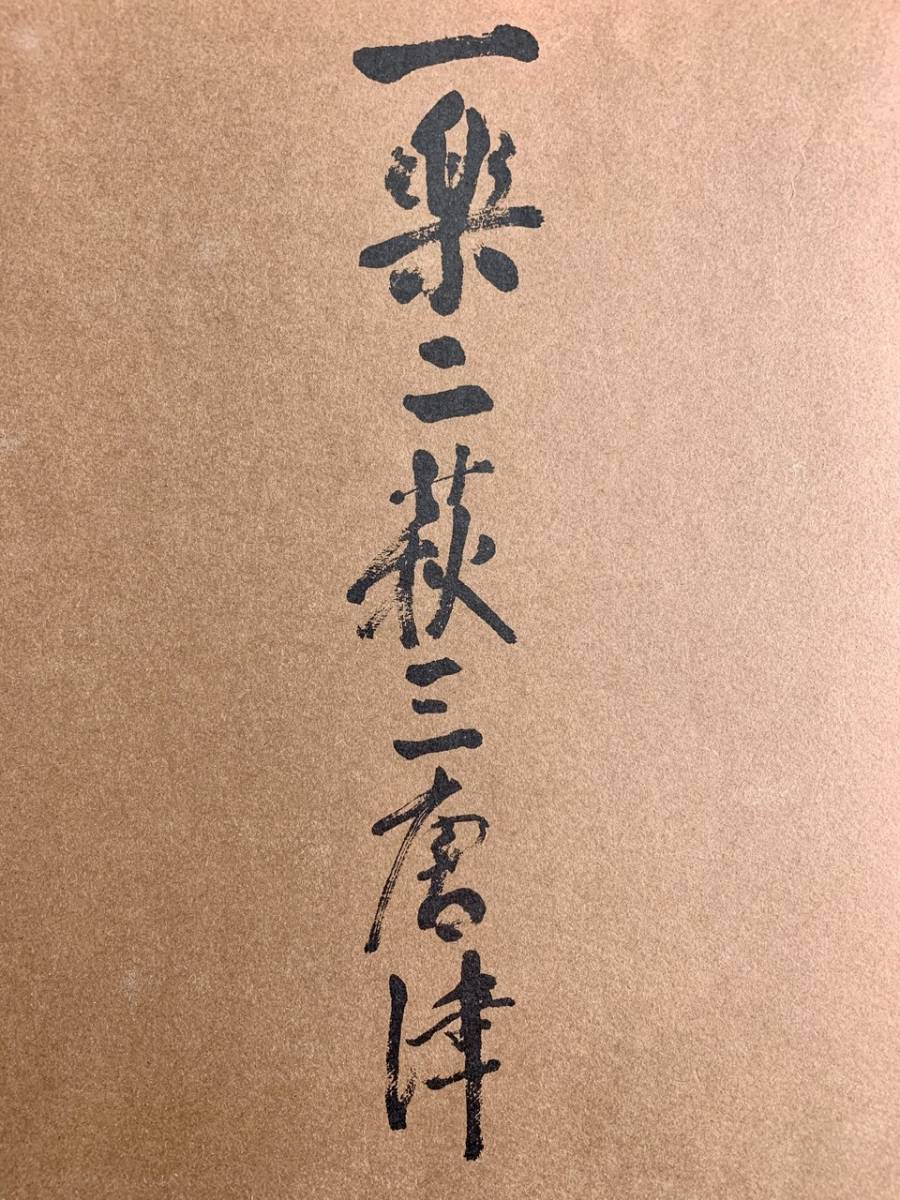 一楽二萩三唐津